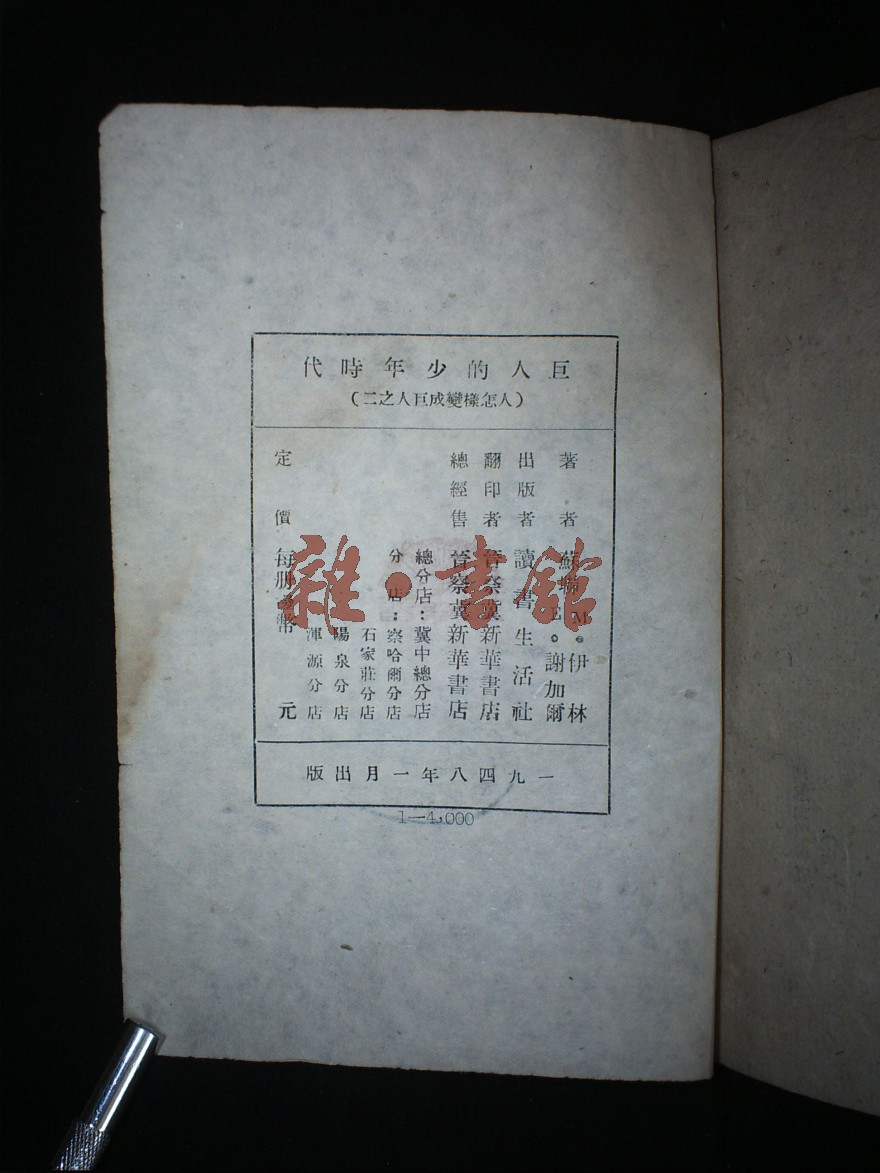 巨人的少年時代
（人怎樣變成巨人之二）
著者 蘇聯 M。伊林
E。謝加爾
出版者 讀書生活社
翻印者 晉察冀新華書店
總經售 晉察冀新華書店
總分店：冀中總分店
分店：察哈爾分店
石家莊分店
陽泉分店
渾源分店
定價 每册 幣 元
一九四八年一月出版
1—4,000
雜·書館